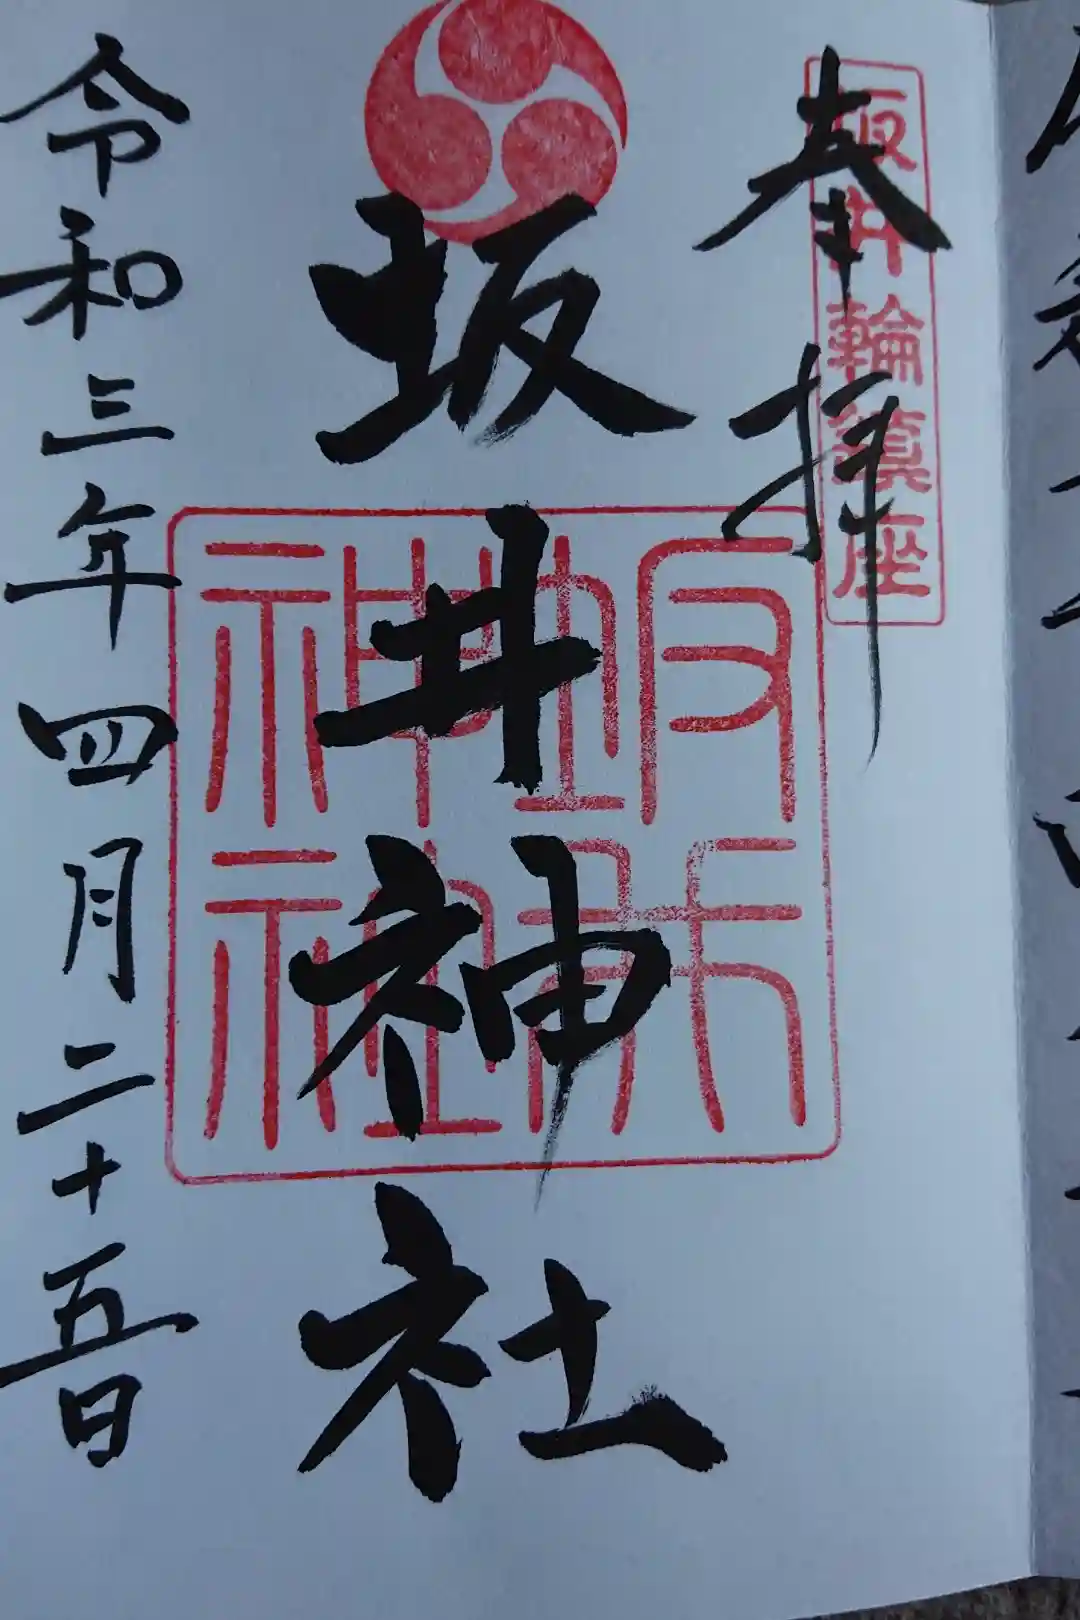 奉拝
坂井輪鎮座
坂井神社
坂井神社
令和三年四月二十五日